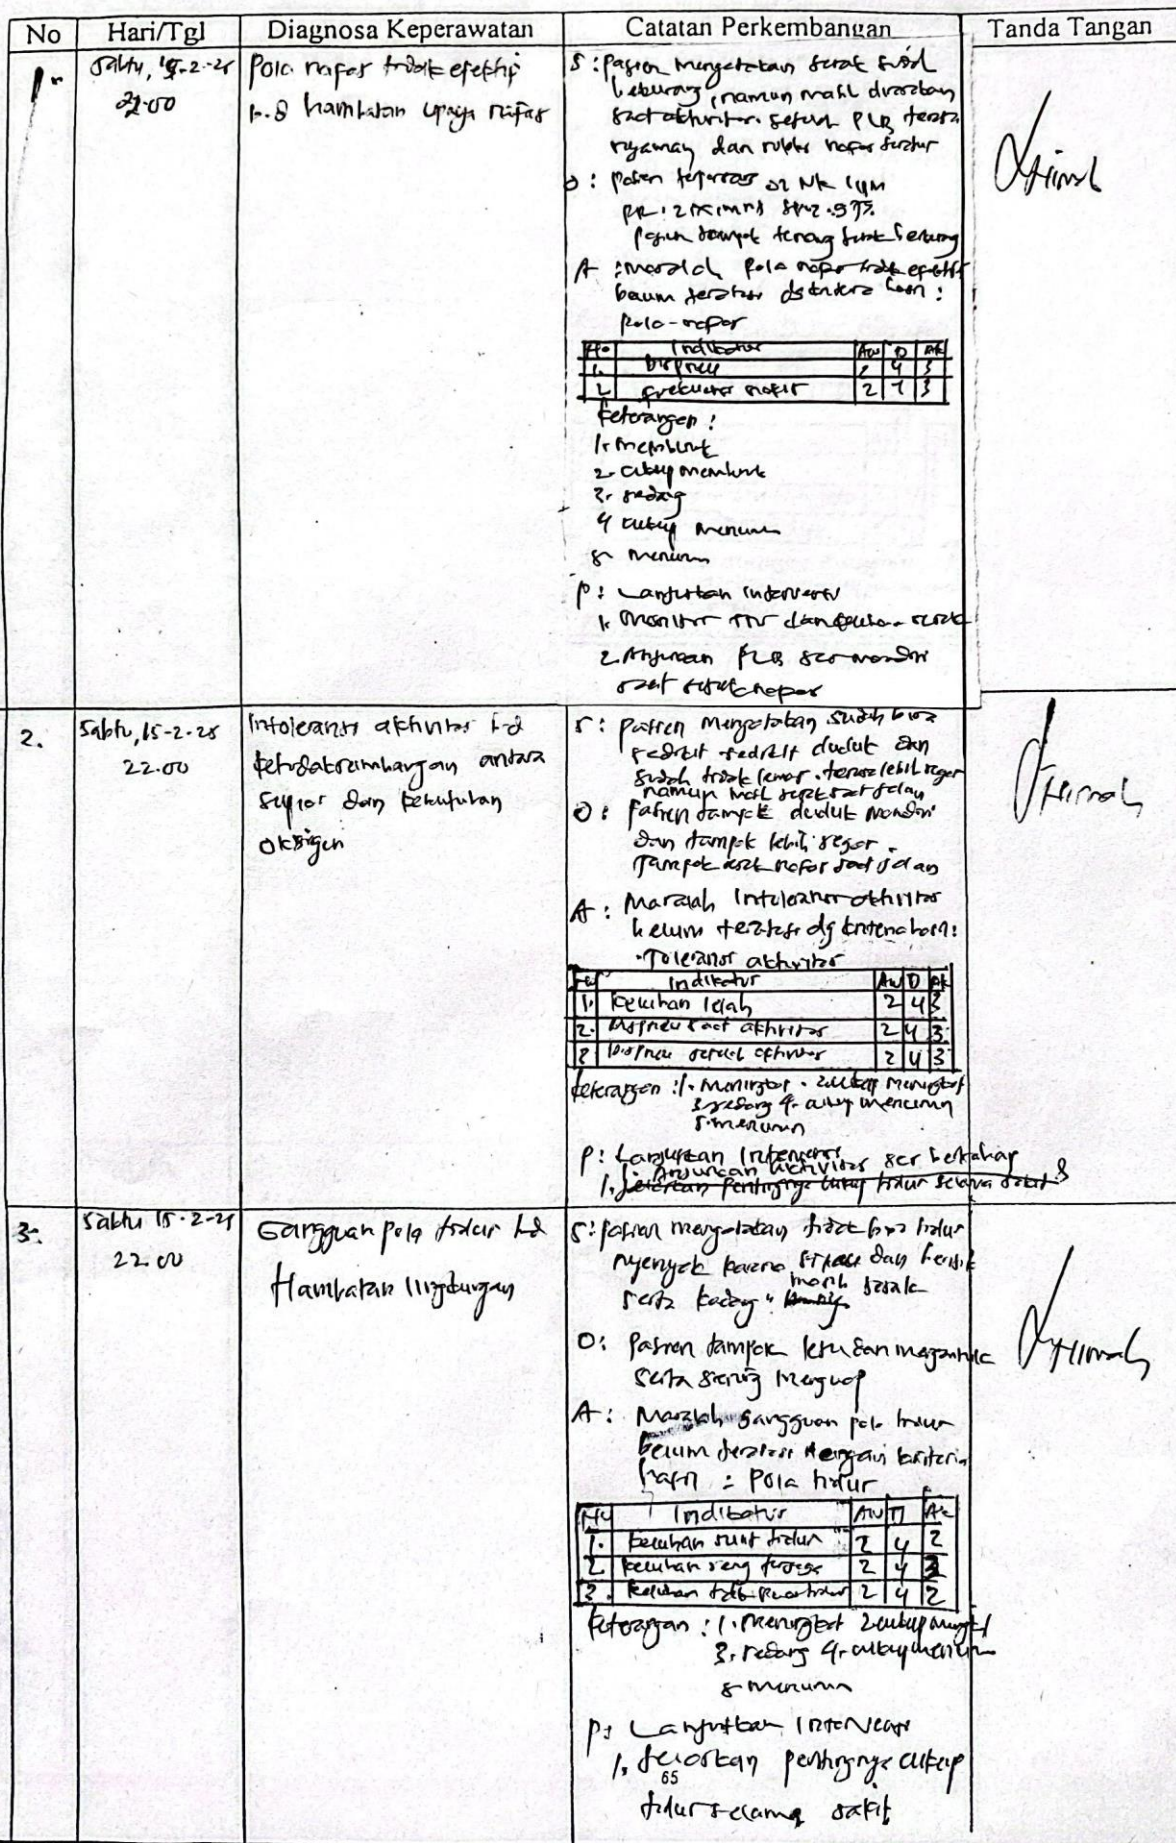 No Hari/Tgl Diagnosa Keperawatan Catatan Perkembangan Tanda Tangan
1. Sabtu, 15-2-25
22.00
Pola nafas tidak efektif
b.d hambatan upaya nafas
S : pasien mengatakan sesak sudah
berkurang, namun masih dirasakan
saat aktivitas. setelah PLB terasa
nyaman dan nafas teratur
O : pasien terpasang O2 NK lpm
RR : 2 x/mnt SPO2 . 97%
pasien tampak tenang sesak berkurang
A : masalah pola nafas tidak efektif
belum teratasi dg kriteria hasil :
pola nafas
No Indikator Aw D Ak
1. Dispneu 2 4 3
2 frekuensi nafas 2 3
Keterangan :
1. memburuk
2. cukup memburuk
3. sedang
4 cukup menurun
5 menurun
P : Lanjutkan intervensi
1. Monitor TTV dan keluhan sesak
2. Anjurkan PLB scr mandiri
saat sesak nafas
2. Sabtu, 15-2-25
22.00
Intoleransi aktivitas b.d
ketidakseimbangan antara
suplai dan kebutuhan
oksigen
S : pasien mengatakan sudah bisa
sedikit-sedikit duduk dan
sudah tidak lemas. terasa lebih segar
namun masih sesak saat jalan
O : pasien tampak duduk mandiri
dan tampak lebih segar.
Tampak sesak nafas saat jalan
A : Masalah Intoleransi aktivitas
belum teratasi dg kriteria hasil :
- Toleransi aktivitas
No Indikator Aw D Ak
1. Keluhan lelah 2 4 3
2. Dispneu saat aktivitas 2 4 3
3 Dispneu setelah aktivitas 2 4 3
Keterangan : 1. Meningkat . 2 cukup meningkat
3. sedang 4. cukup menurun
5. menurun
P : Lanjutkan Intervensi
1. Anjurkan aktivitas scr bertahap
1. Jelaskan pentingnya cukup tidur selama sakit
3. Sabtu 15-2-25
22.00
Gangguan pola tidur b.d
Hambatan lingkungan
S : pasien mengatakan tidak bisa tidur
nyenyak karena dan berisik
serta kadang" masih sesak
O : Pasien tampak lesu dan mengantuk
serta sering menguap
A : Masalah gangguan pola tidur
belum teratasi dengan kriteria
hasil : Pola tidur
No Indikator Aw D Ak
1. Keluhan sulit tidur 2 4 2
2 Keluhan sering terjaga 2 4
3. Keluhan tidak puas tidur 2 4 2
Keterangan : 1. Meningkat 2 cukup meningkat
3. sedang 4. cukup menurun
5 menurun
P : Lanjutkan Intervensi
1. Jelaskan pentingnya cukup
65
tidur selama sakit